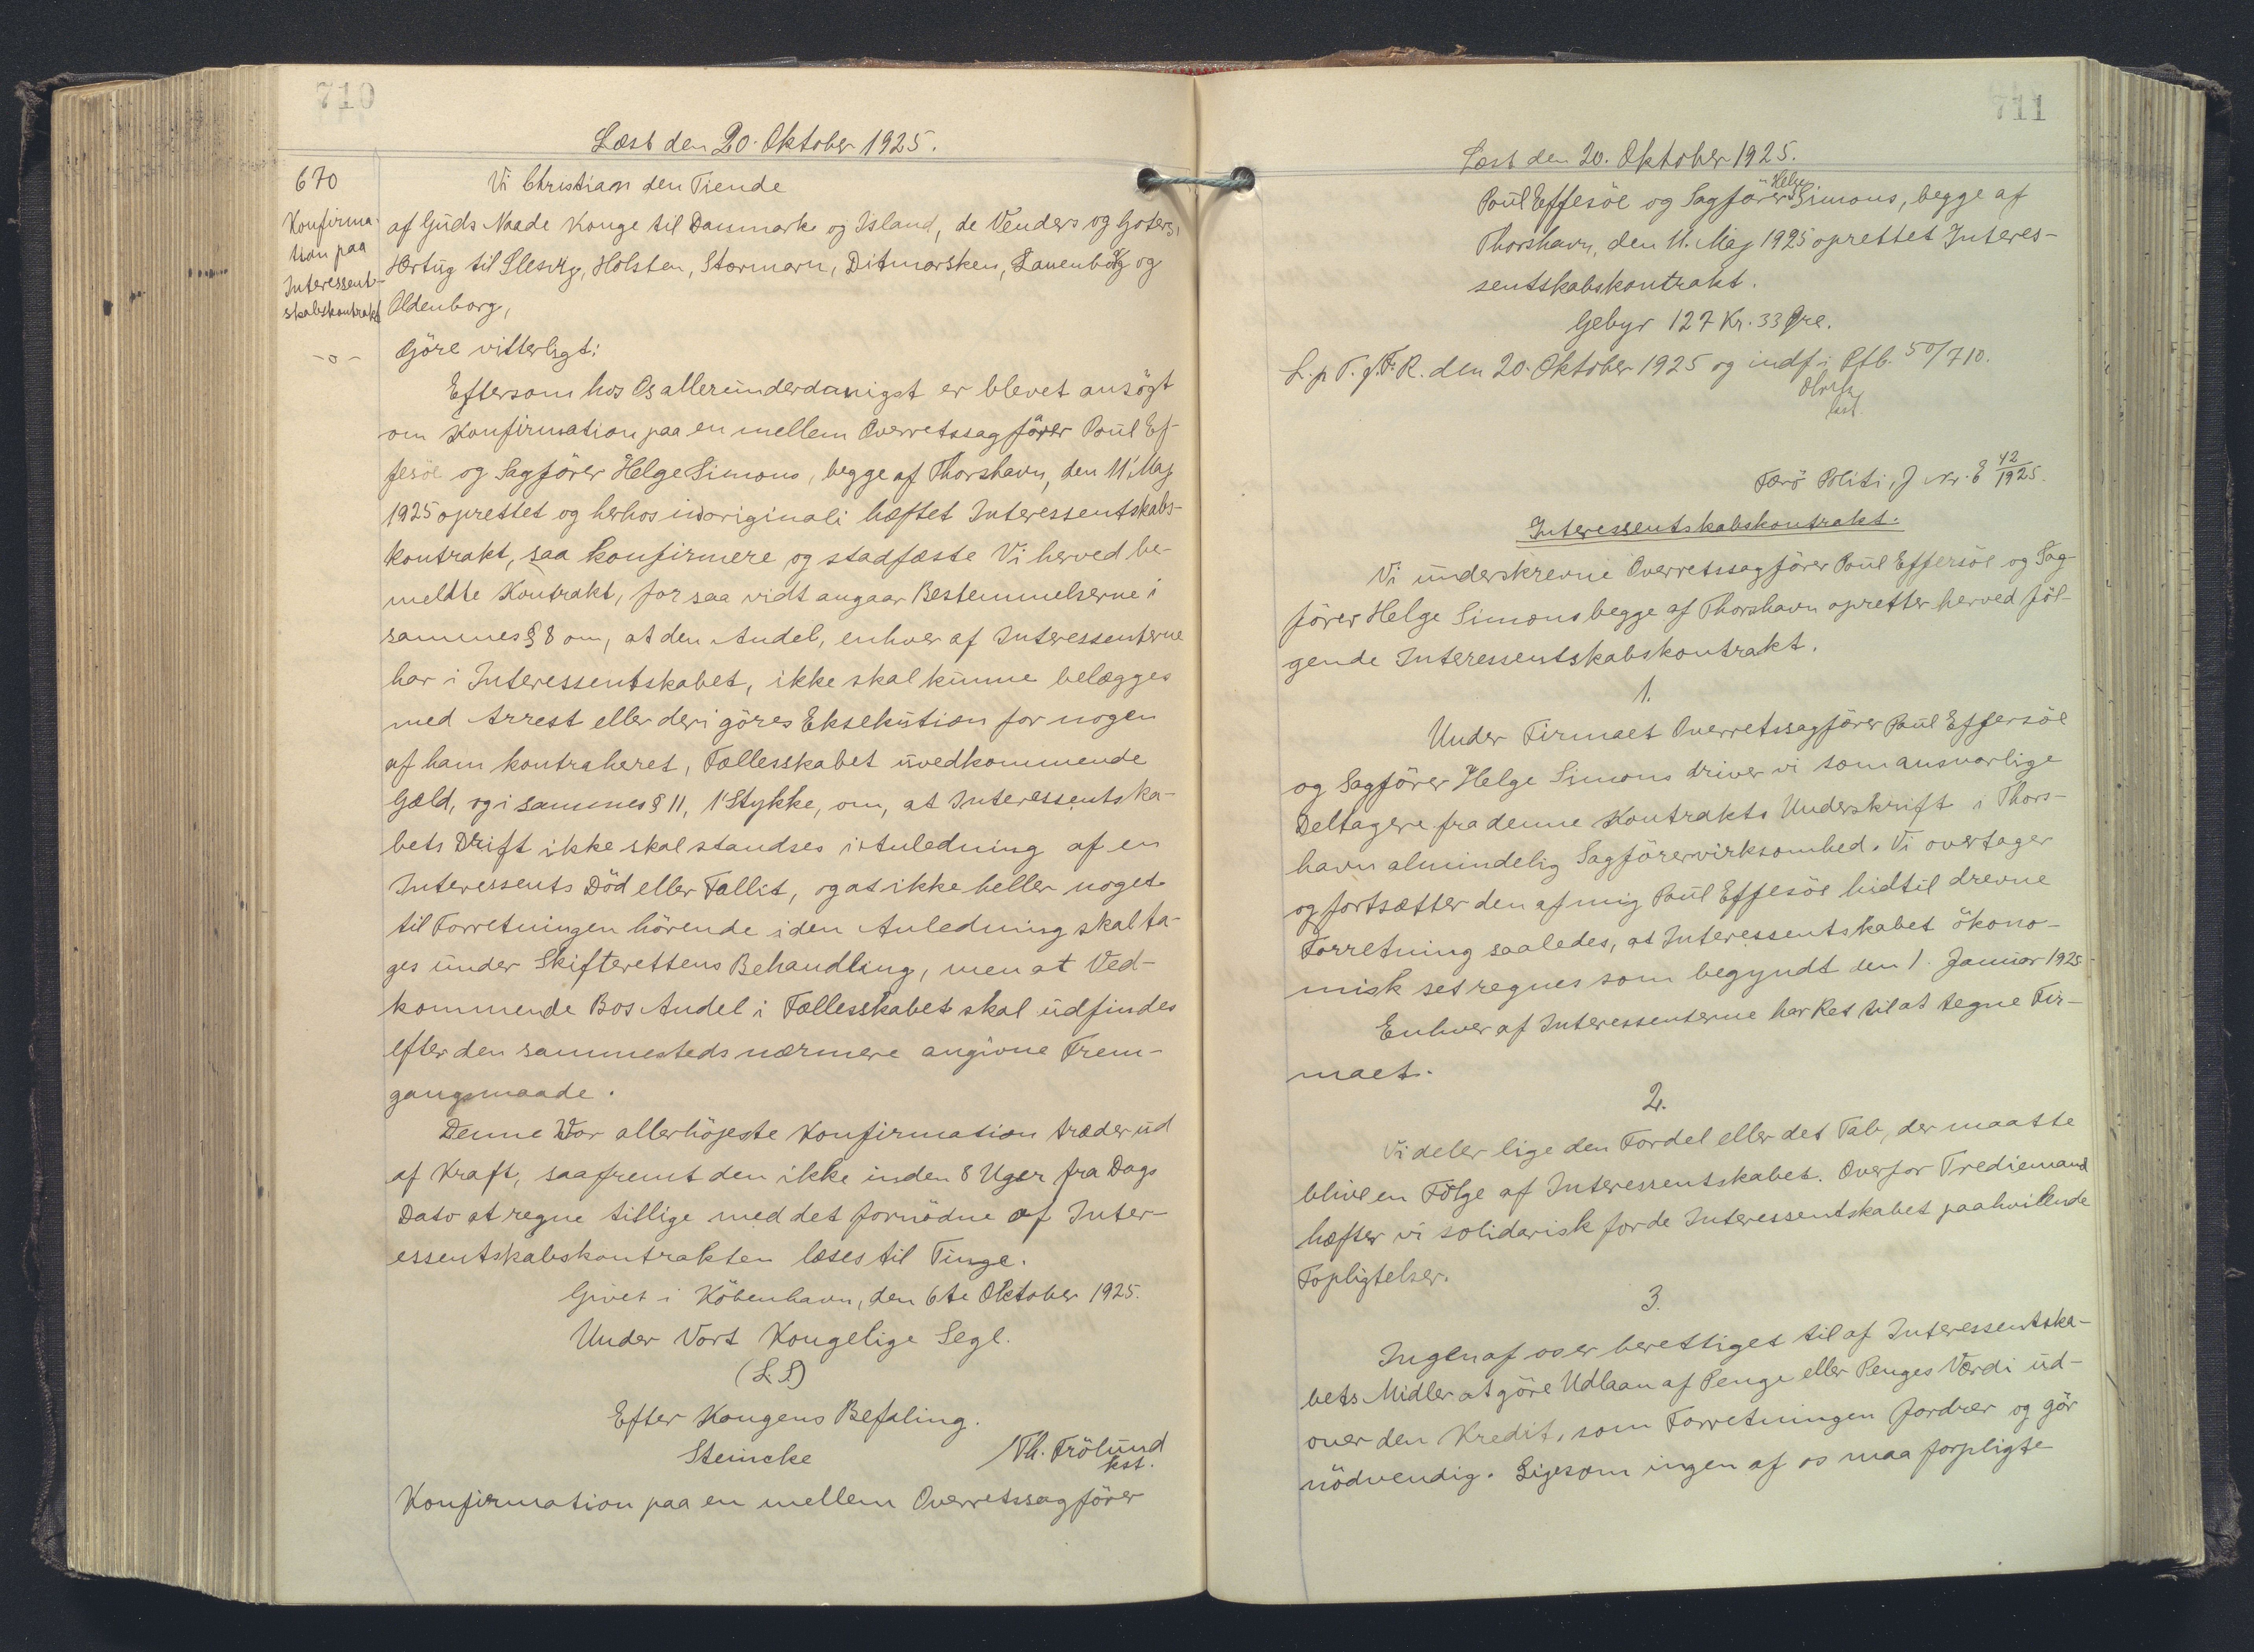 710
Læst den 20. Oktober 1925.
670
Konfirma-
tion paa
Interessent-
skabskontrakt
-o-
Vi Christian den Tiende
af Guds Naade Konge til Danmark og Island, de Venders og Goters,
Hertug til Slesvig, Holsten, Stormarn, Ditmarsken, Lauenborg og
Oldenborg,
Göre vitterligt:
Eftersom hos Os allerunderdanigst er blevet ansögt
om Konfirmation paa en mellem Overretssagförer Poul Ef-
fesöe og Sagförer Helge Simons, begge af Thorshavn, den 11' Maj
1925 oprettet og herhos in originali hæftet Interessentskabs-
kontrakt, saa konfirmere og stadfæste Vi herved be-
meldte Kontrakt, for saa vidt angaar Bestemmelserne i
sammes § 8 om, at den Andel, enhver af Interessenterne
har i Interessentskabet, ikke skal kunne belægges
med Arrest eller deri göres Eksekution for nogen
af ham kontraheret, Fællesskabet uvedkommende
Gæld, og i sammes § 11, 1' Stykke, om, at Interessentska-
bets Drift ikke skal standses i Anledning af en
Interessents Död eller Fallit, og at ikke heller noget
til Forretningen hörende i den Anledning skal ta-
ges under Skifterettens Behandling, men at Ved-
kommende Bos Andel i Fællesskabet skal udfindes
efter den sammesteds nærmere angivne Frem-
gangsmaade.
Denne Vor allerhöjeste Konfirmation træder ud
af Kraft, saafremt den ikke inden 8 Uger fra Dags
Dato at regne tillige med det fornödne af Inter-
essentskabskontrakten læses til Tinge.
Givet i Köbenhavn, den 6te Oktober 1925.
Under Vort Kongelige Segl.
(L.S.)
Efter Kongens Befaling.
Steincke Th. Frölund
kst.
Konfirmation paa en mellem Overretssagförer
711
Læst den 20. Oktober 1925.
Helge
Poul Effesöe og Sagförer Simons, begge af
Thorshavn, den 11. Maj 1925 oprettet Interes-
sentskabskontrakt.
Gebyr 127 Kr. 33 Øre.
L. p T. f. F. R. den 20. Oktober 1925 og indf i Ptb. 50/710.
kst.
Færö Politi, J Nr. E 42/1925.
Interessentskabskontrakt.
Vi underskrevne Overretssagförer Poul Effersöe og Sag-
förer Helge Simons begge af Thorshavn opretter herved föl-
gende Interessentskabskontrakt.
1.
Under Firmaet Overretssagförer Poul Effersöe
og Sagförer Helge Simons driver vi som ansvarlige
Deltagere fra denne Kontrakts Underskrift i Thors-
havn almindelig Sagförervirksomhed. Vi overtager
og fortsætter den af mig Poul Effesöe hidtil drevne
Forretning saaledes, at Interessentskabet ökono-
misk set regnes som begyndt den 1. Januar 1925.
Enhver af Interessenterne har Ret til at tegne Fir-
maet.
2.
Vi deler lige den Fordel eller det Tab, der maatte
blive en Fölge af Interessentskabet. Overfor Trediemand
hæfter vi solidarisk for de Interessentskabet paahvilende
Fopligtelser.
3.
Ingen af os er berettiget til af Interessentska-
bets Midler at göre Udlaan af Penge eller Penges Værdi ud-
over den Kredit, som Forretningen fordrer og gör
nödvendig. Ligesom ingen af os maa forpligte